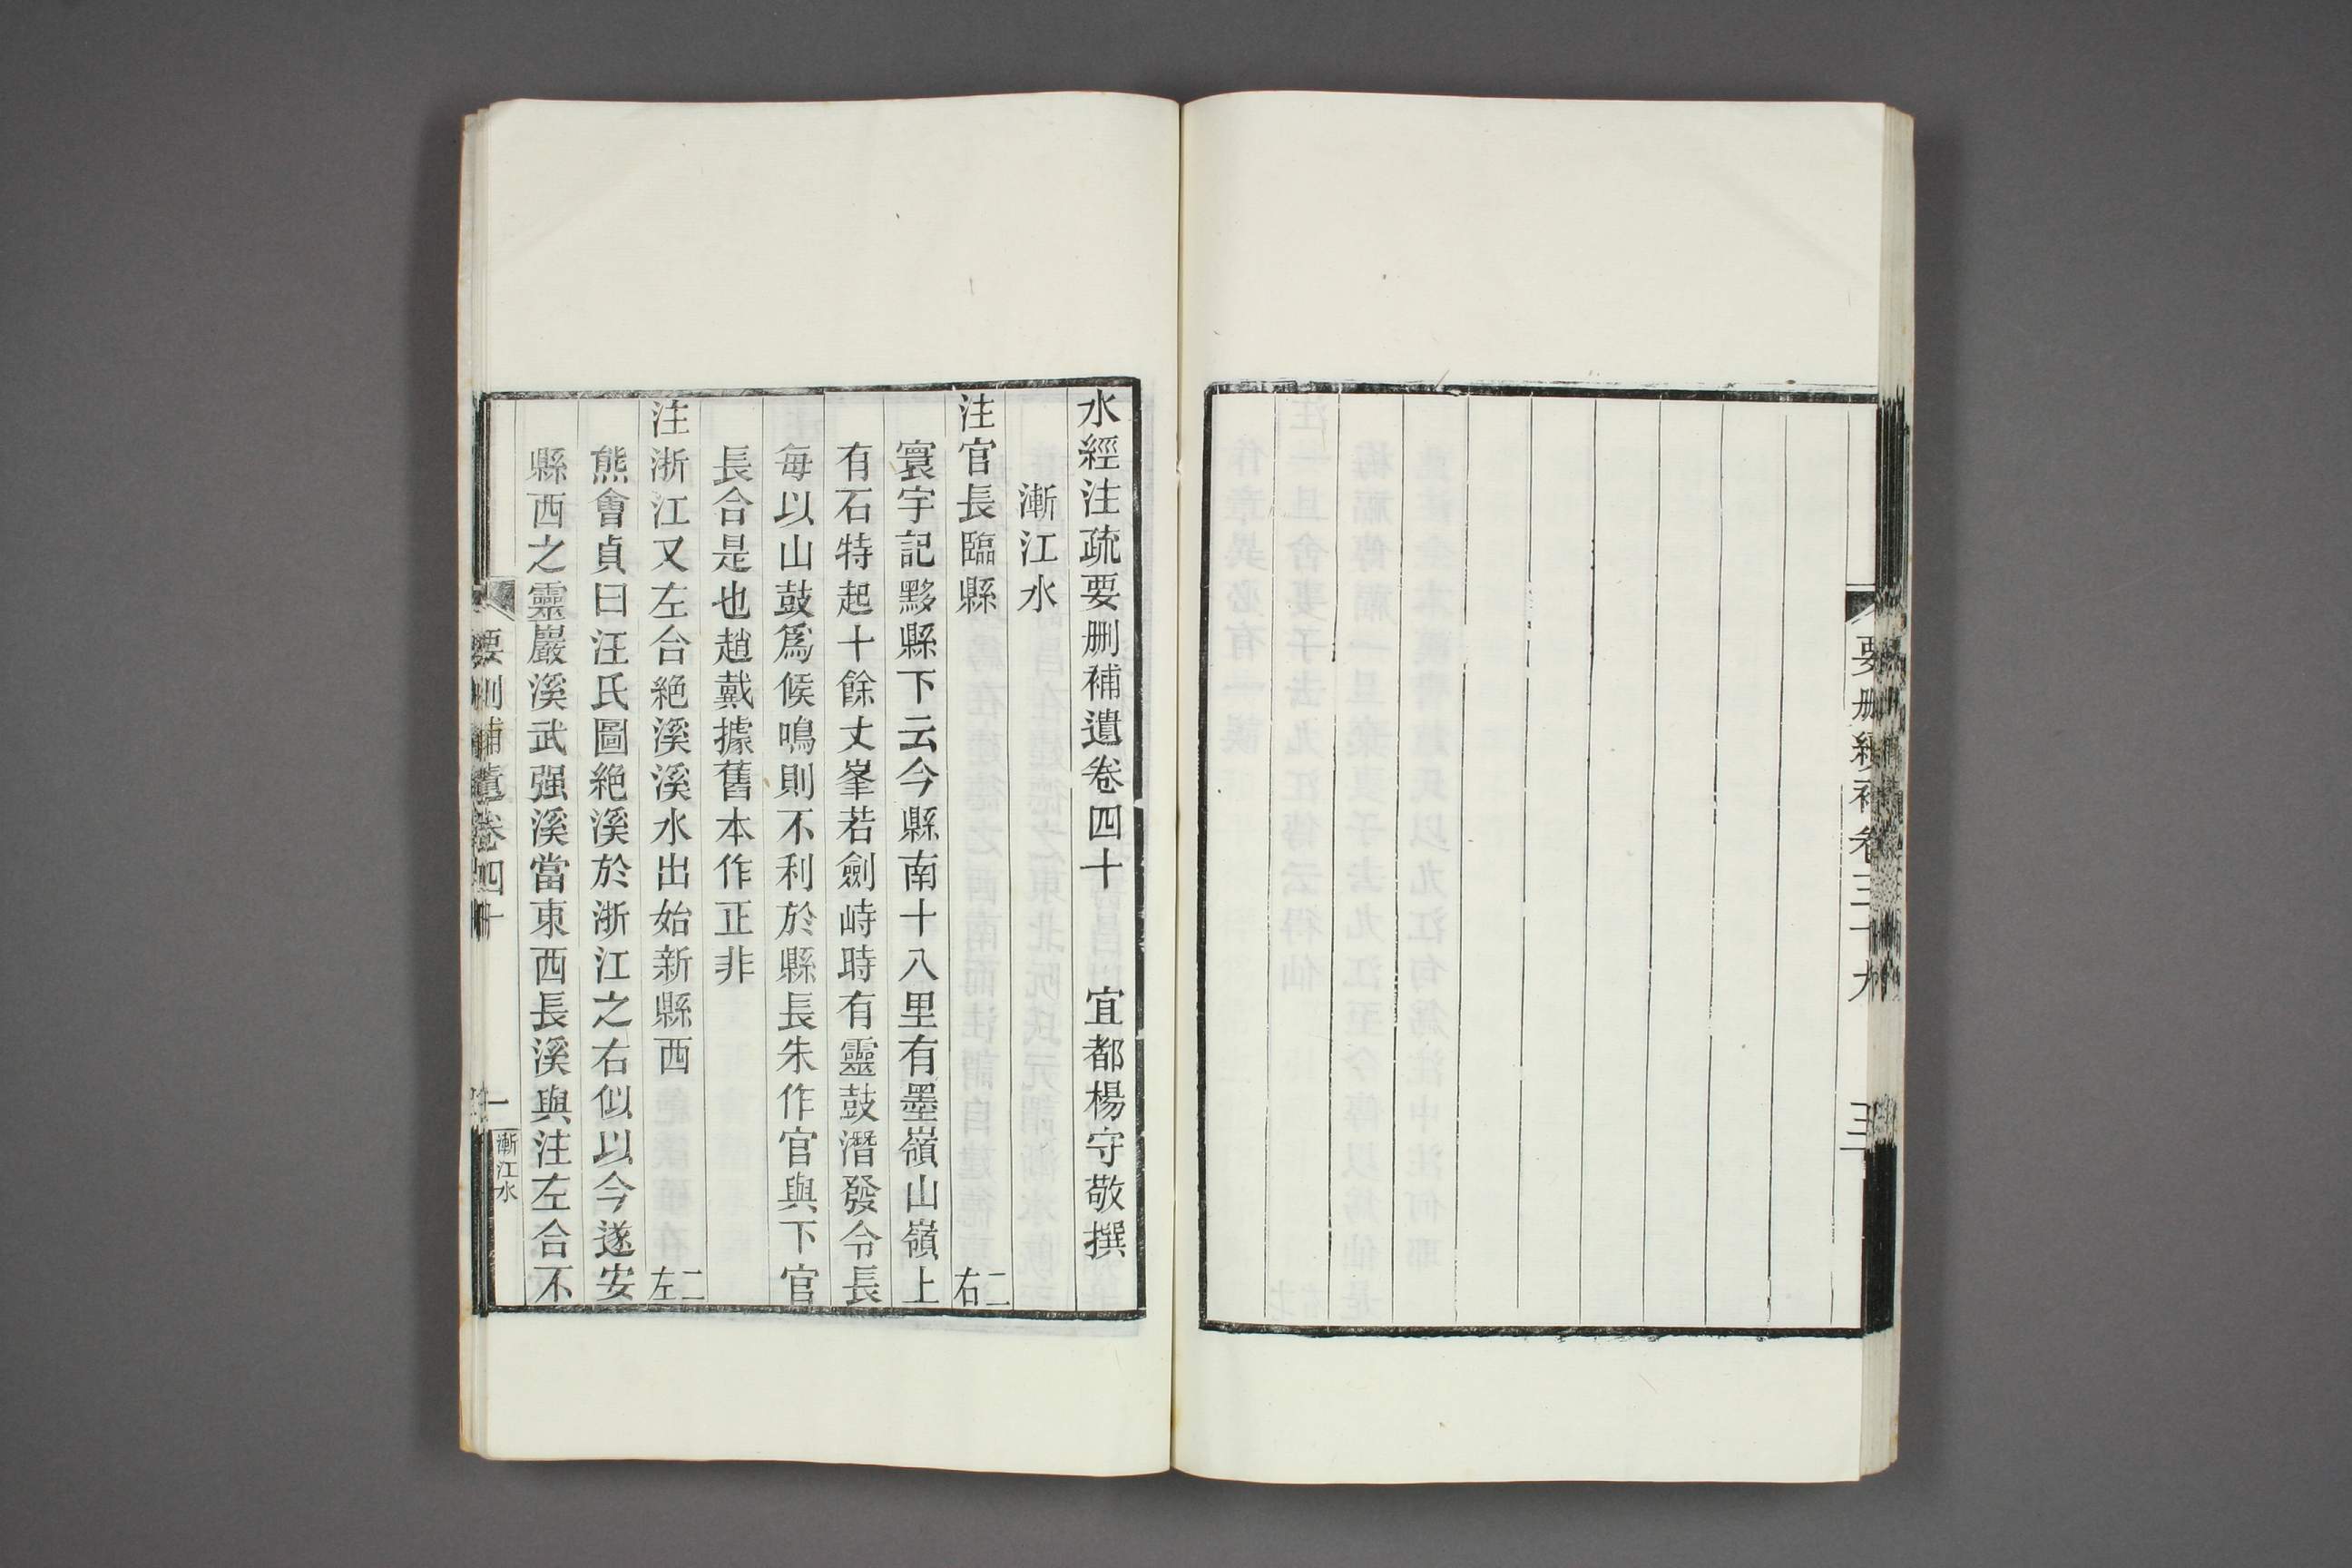 要刪續補卷三十九
三
水經注疏要刪補遺卷四十　宜都楊守敬撰
漸江水
注官長臨縣　二右
寰宇記黟縣下云今縣南十八里有墨嶺山嶺上
有石特起十餘丈峯若劍峙時有靈鼓潛發令長
每以山鼓爲候鳴則不利於縣長朱作官與下官
長合是也趙戴據舊本作正非
注浙江又左合絶溪溪水出始新縣西　二左
熊會貞曰汪氏圖絶溪於浙江之右似以今遂安
縣西之靈巖溪武强溪當東西長溪與注左合不
要刪補遺卷四十
一
漸江水